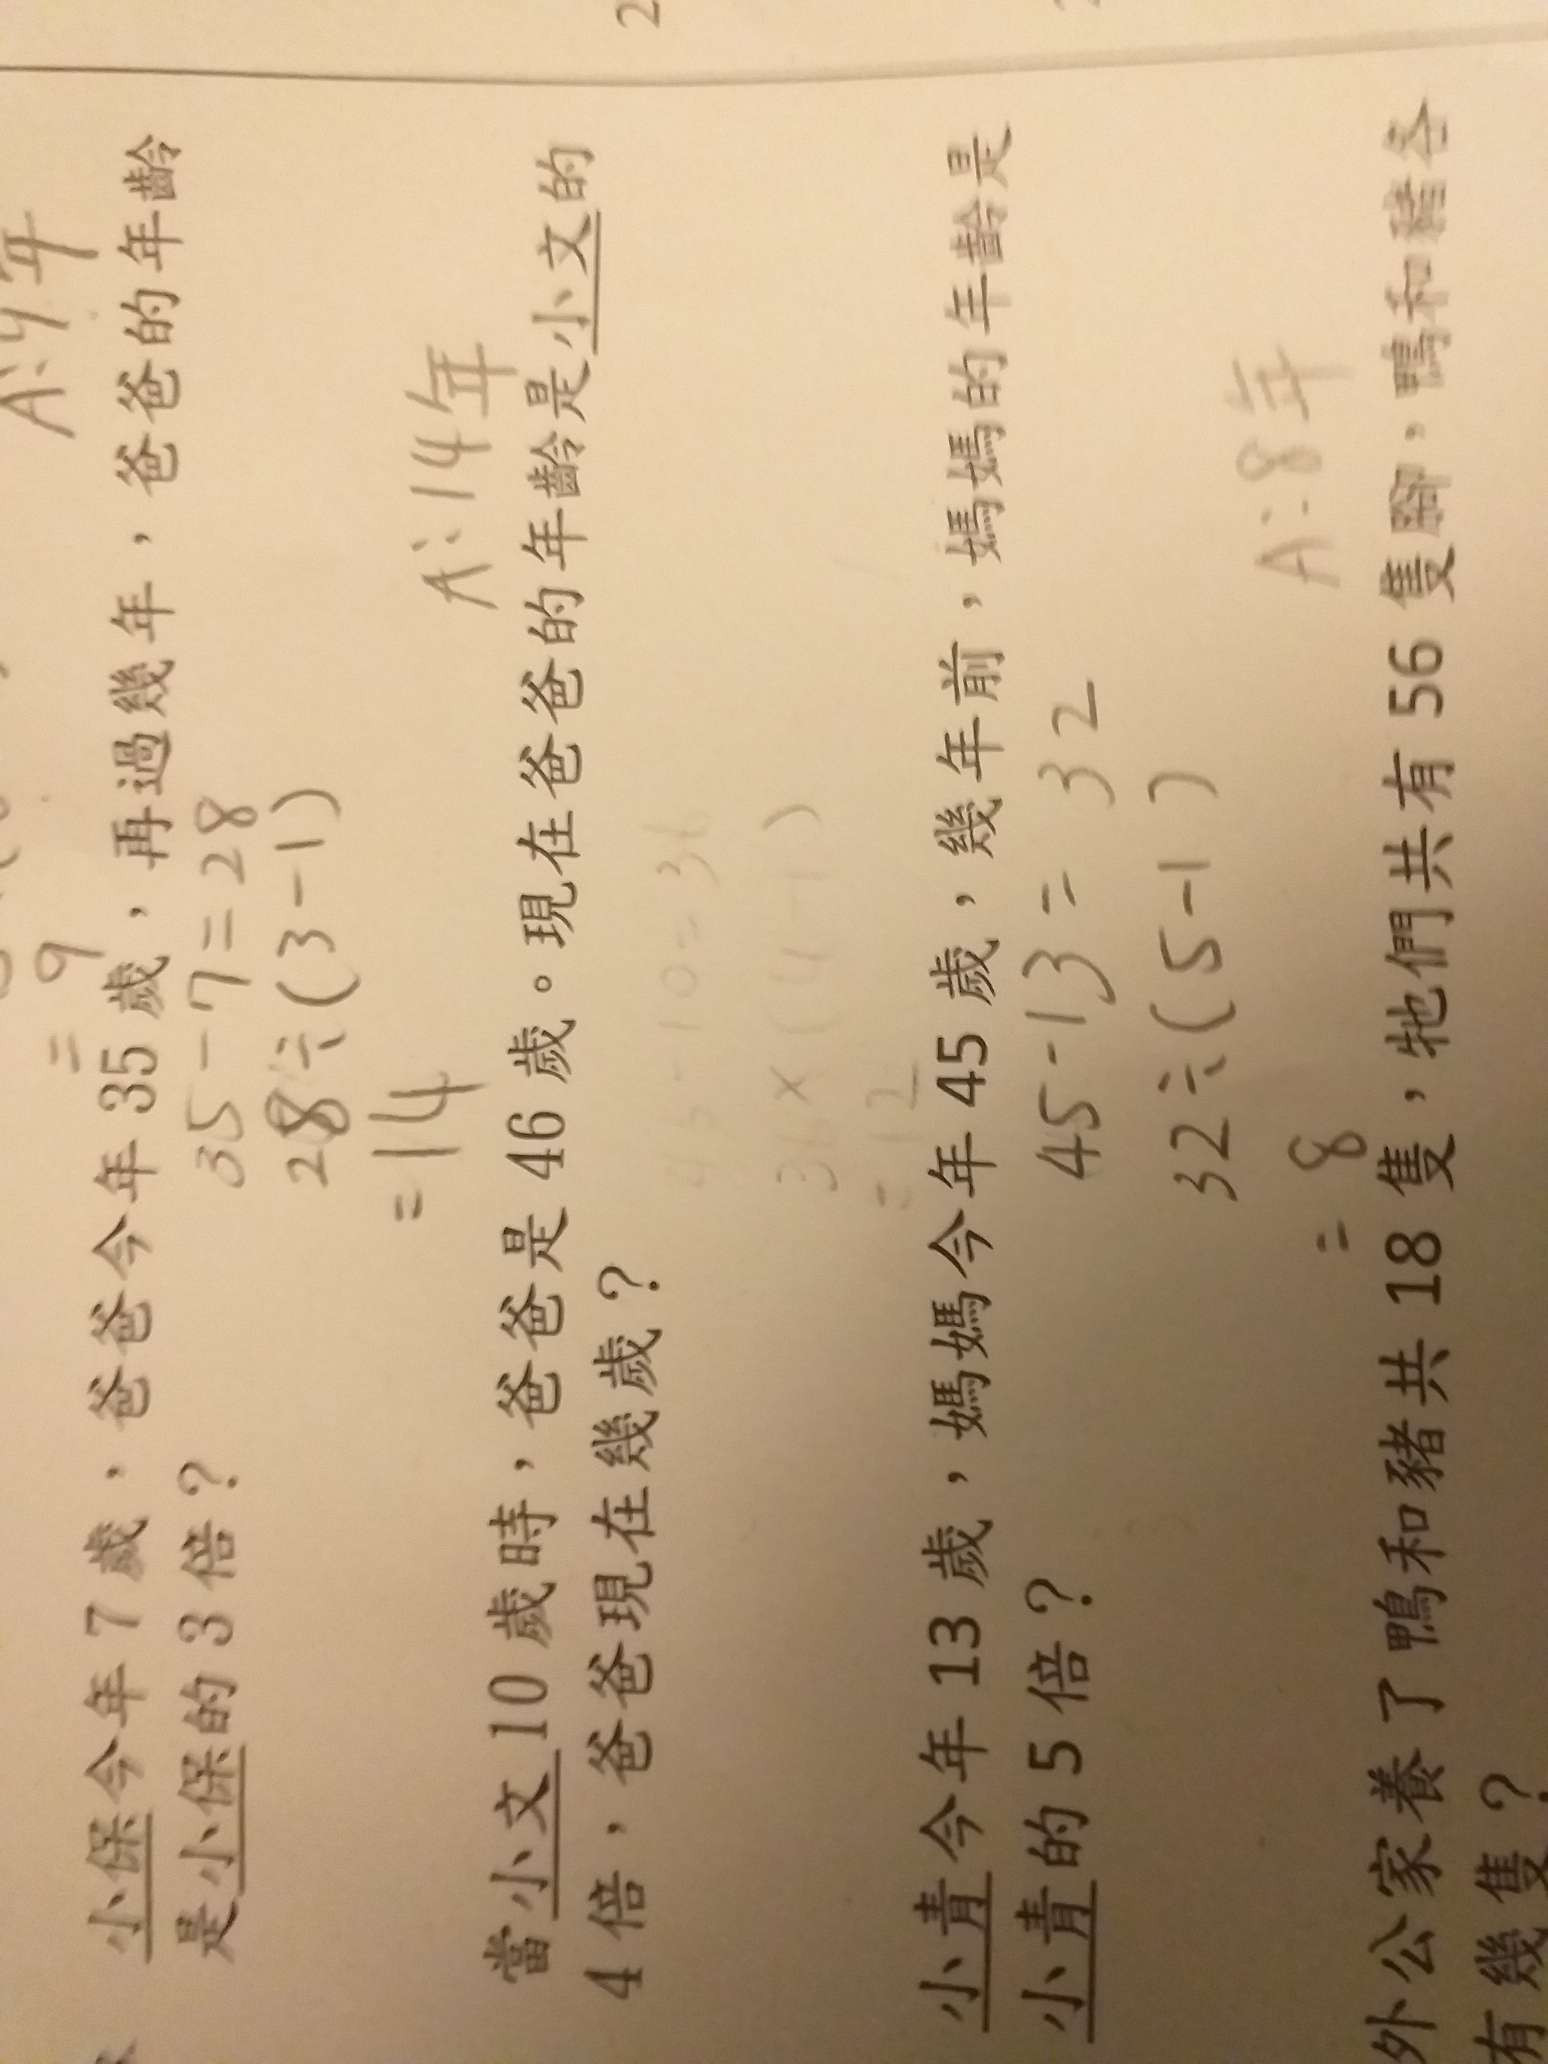 A:9年
= 9
小保今年 7 歲，爸爸今年 35 歲，再過幾年，爸爸的年齡
是小保的 3 倍？
35-7=28
28÷(3-1)
=14
A:14年
當小文 10 歲時，爸爸是 46 歲。現在爸爸的年齡是小文的
4 倍，爸爸現在幾歲？
46-10=36
36×(4-1)
=12
小青今年 13 歲，媽媽今年 45 歲，幾年前，媽媽的年齡是
小青的 5 倍？
45-13=32
32÷(5-1)
=8
A:8年
外公家養了鴨和豬共 18 隻，牠們共有 56 隻腳，鴨和豬各
有幾隻？